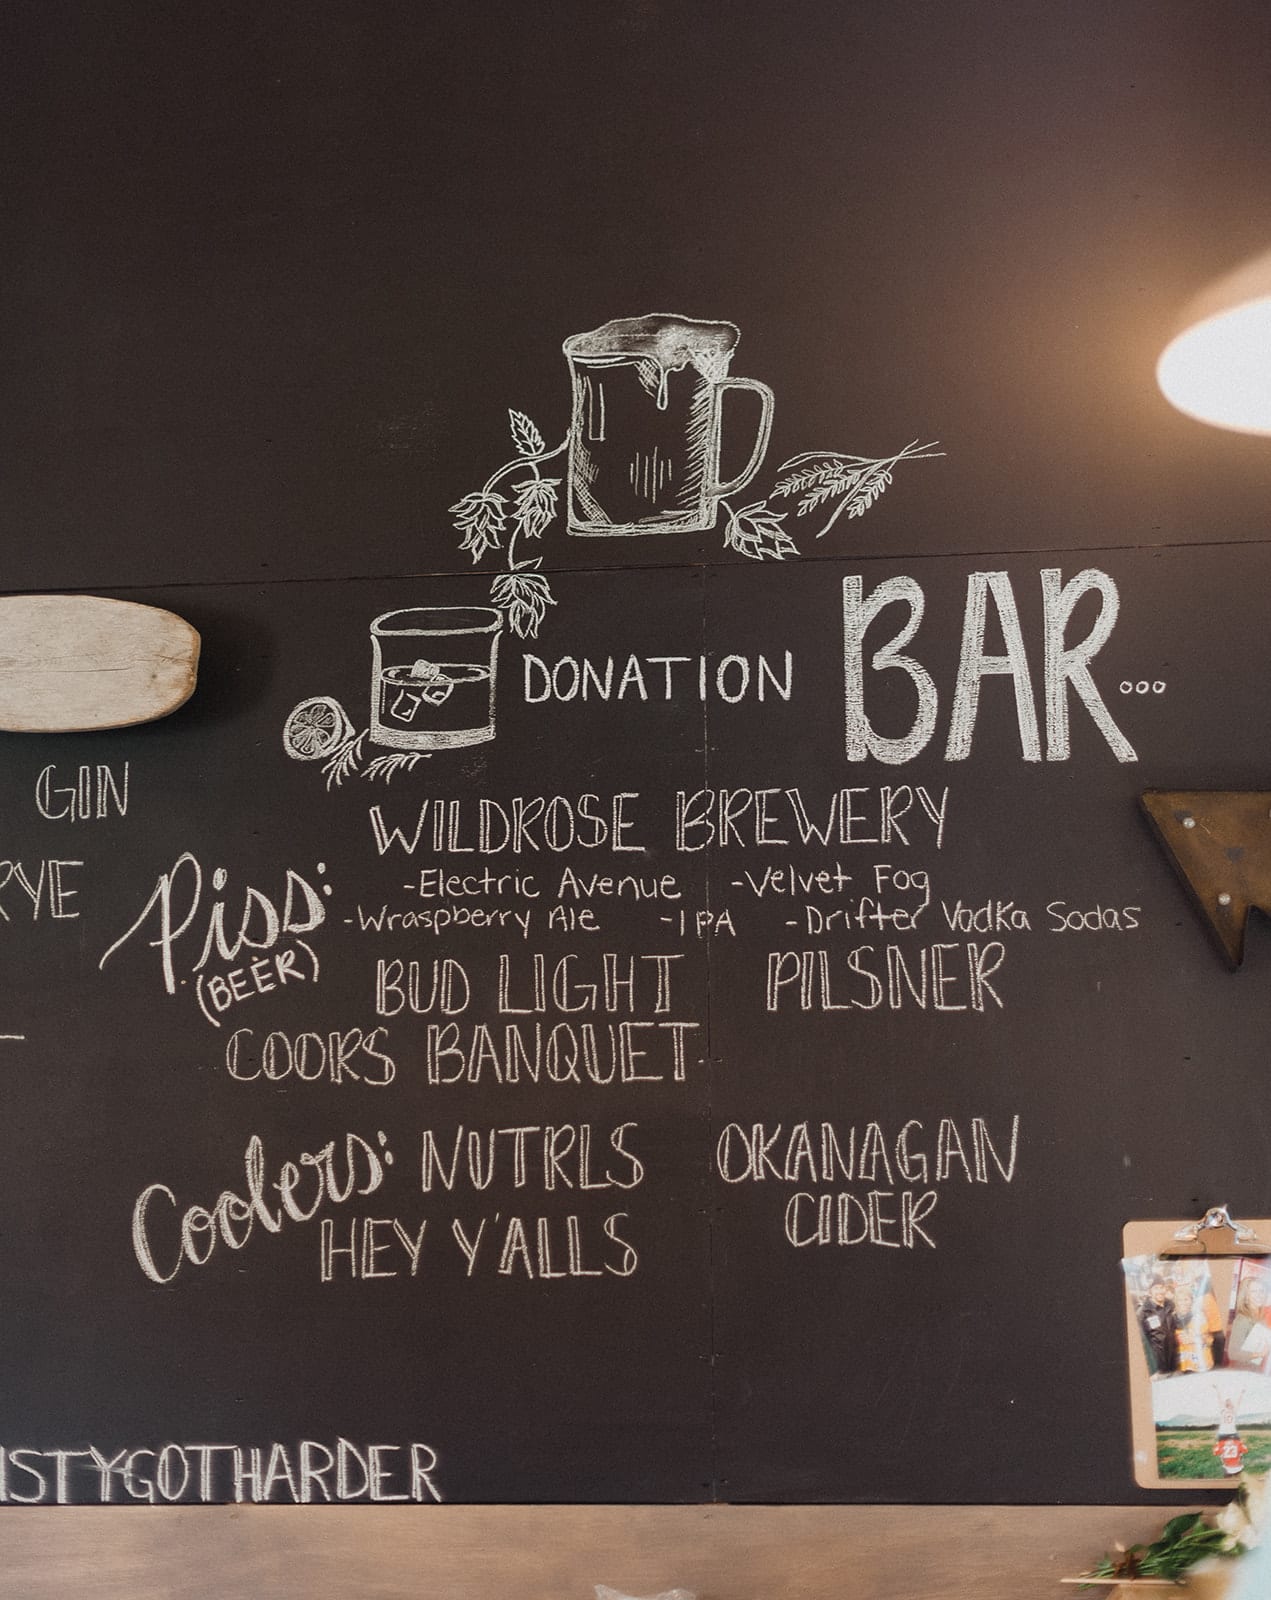 DONATION BAR...
GIN
RYE
WILDROSE BREWERY
Piss:
(BEER)
-Electric Avenue -Velvet Fog
-Wraspberry Ale -IPA -Drifter Vodka Sodas
BUD LIGHT PILSNER
COORS BANQUET
Coolers: NUTRLS OKANAGAN
CIDER
HEY Y'ALLS
ISTYGOTHARDER
23